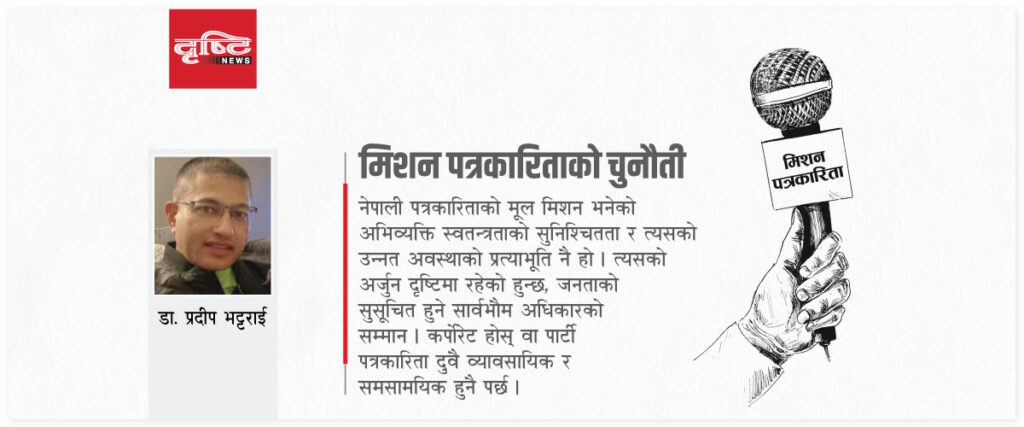 दृष्टि
NEWS
डा. प्रदीप भट्टराई
मिशन पत्रकारिताको चुनौती
नेपाली पत्रकारिताको मूल मिशन भनेको
अभिव्यक्ति स्वतन्त्रताको सुनिश्चितता र त्यसको
उन्नत अवस्थाको प्रत्याभूति नै हो । त्यसको
अर्जुन दृष्टिमा रहेको हुन्छ, जनताको
सुसूचित हुने सार्वभौम अधिकारको
सम्मान । कर्पोरेट होस् वा पार्टी
पत्रकारिता दुवै व्यावसायिक र
समसामयिक हुनै पर्छ ।
मिशन
पत्रकारिता